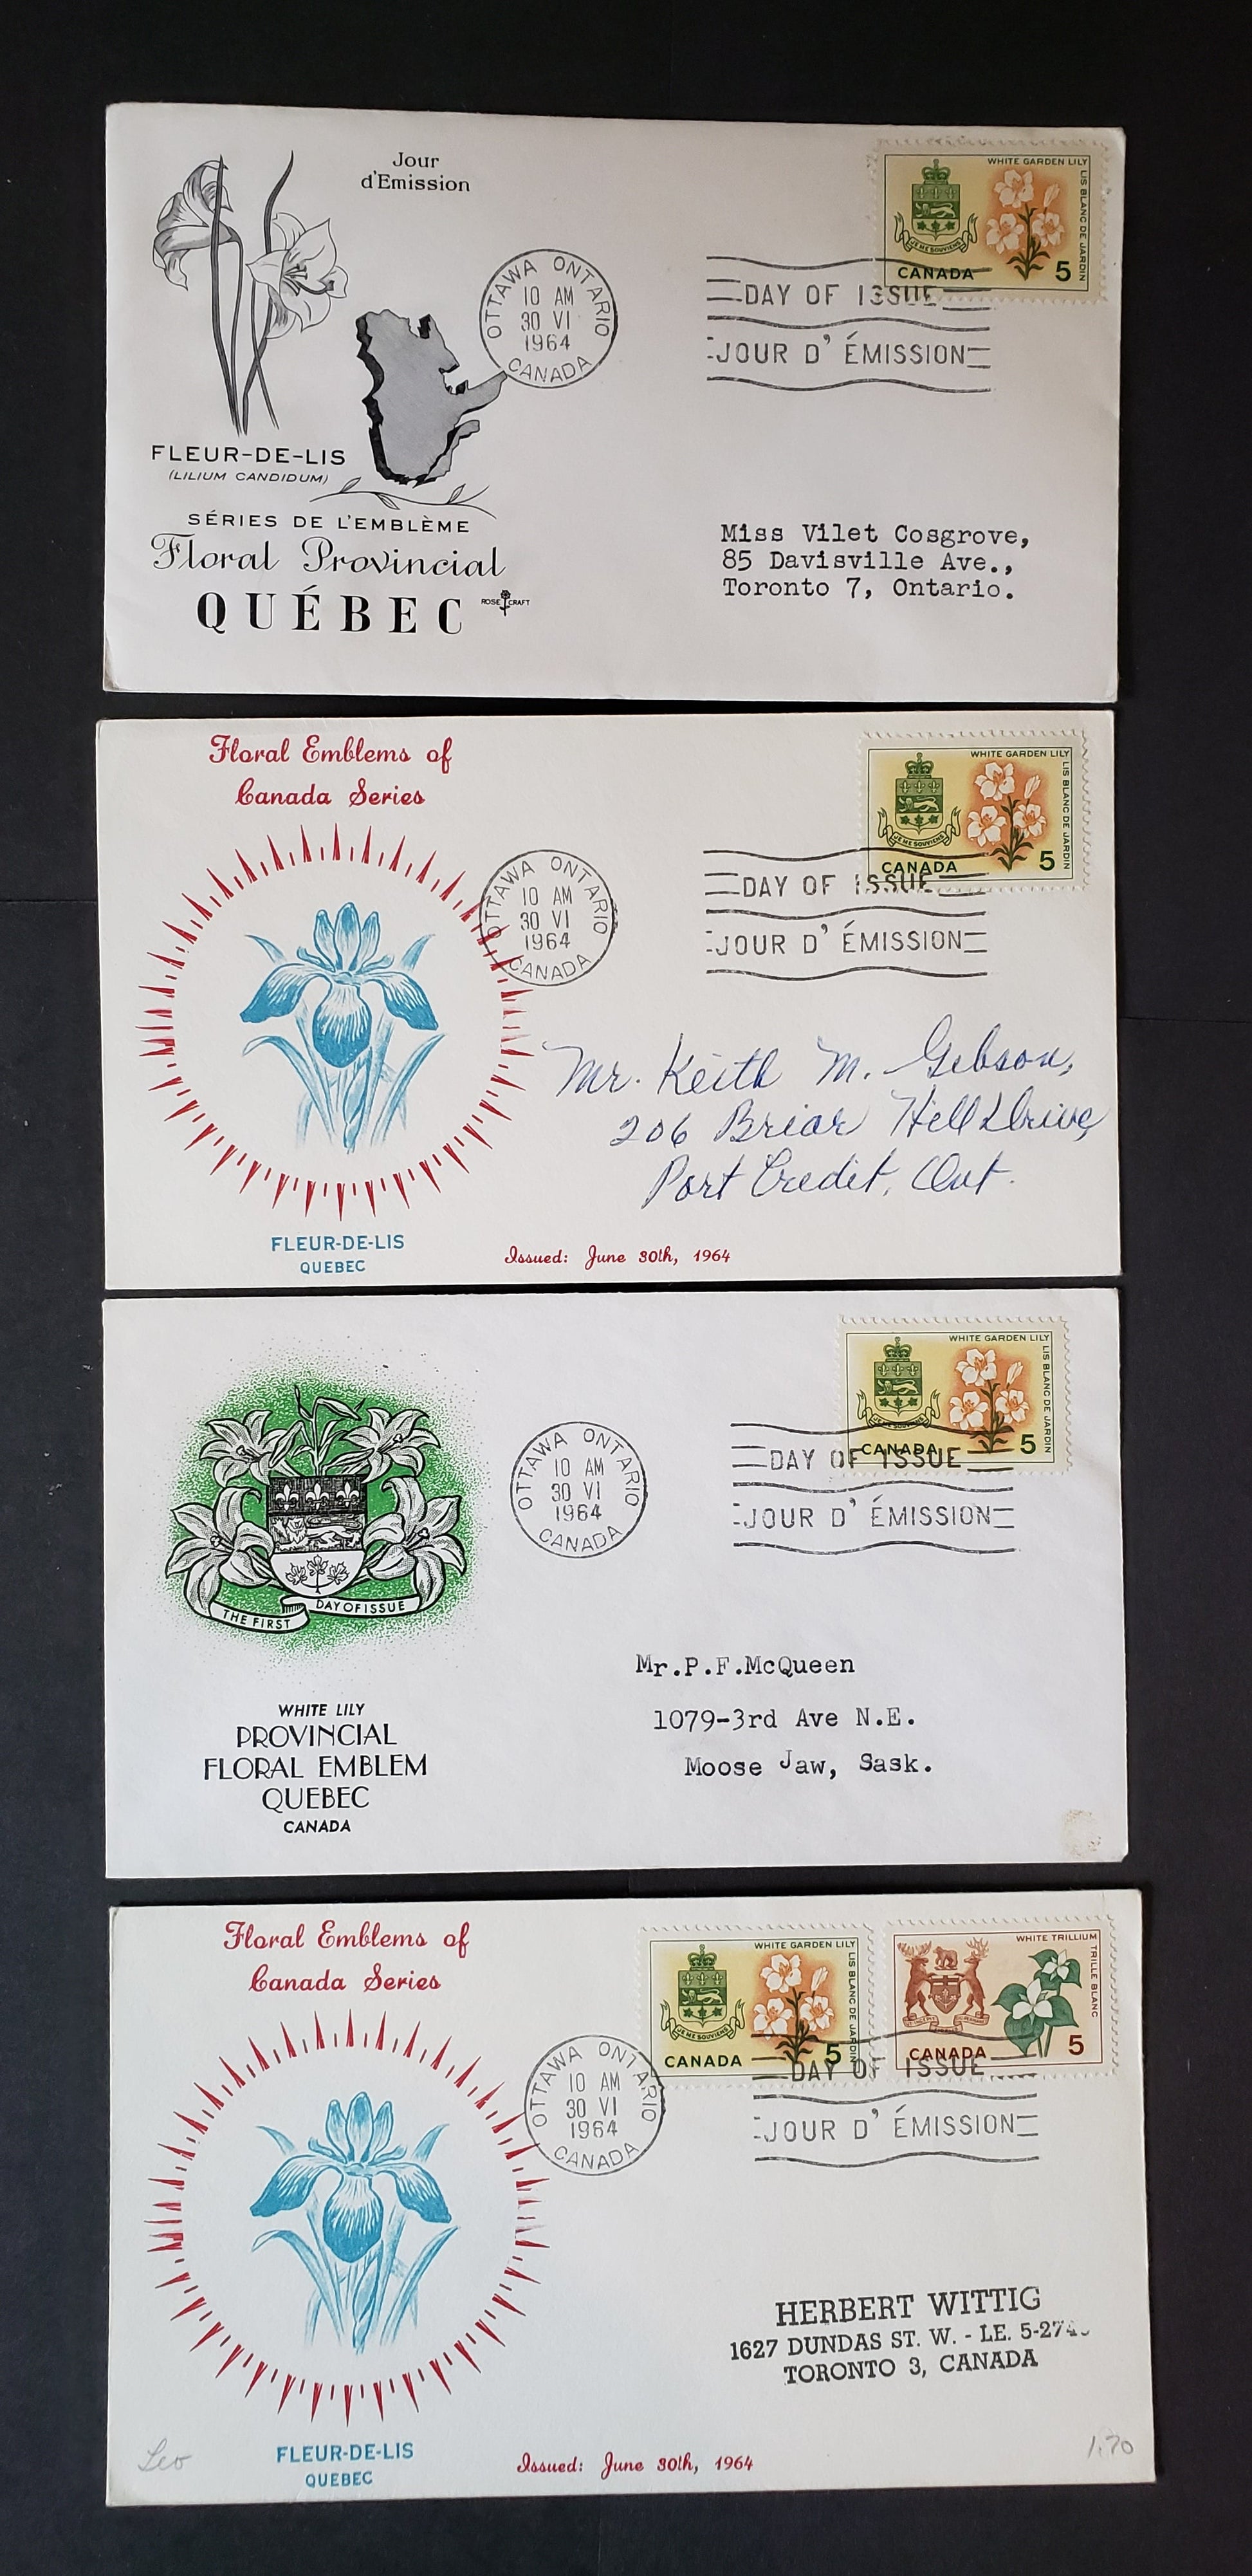 Jour
d'Emission
WHITE GARDEN LILY
LIS BLANC DE JARDIN
JE ME SOUVIENS
CANADA 5
OTTAWA ONTARIO
10 AM
30 VI
1964
CANADA
DAY OF ISSUE
JOUR D' ÉMISSION
FLEUR-DE-LIS
(LILIUM CANDIDUM)
SÉRIES DE L'EMBLÈME
Floral Provincial
QUÉBEC
ROSE CRAFT
Miss Vilet Cosgrove,
85 Davisville Ave.,
Toronto 7, Ontario.
Floral Emblems of
Canada Series
WHITE GARDEN LILY
LIS BLANC DE JARDIN
JE ME SOUVIENS
CANADA 5
OTTAWA ONTARIO
10 AM
30 VI
1964
CANADA
DAY OF ISSUE
JOUR D' ÉMISSION
Mr. Keith M. Gibson,
206 Briar Hill Drive
Port Credit, Ont.
FLEUR-DE-LIS
QUEBEC
Issued: June 30th, 1964
WHITE GARDEN LILY
LIS BLANC DE JARDIN
JE ME SOUVIENS
CANADA 5
OTTAWA ONTARIO
10 AM
30 VI
1964
CANADA
DAY OF ISSUE
JOUR D' ÉMISSION
THE FIRST DAY OF ISSUE
WHITE LILY
PROVINCIAL
FLORAL EMBLEM
QUEBEC
CANADA
Mr.P.F.McQueen
1079-3rd Ave N.E.
Moose Jaw, Sask.
Floral Emblems of
Canada Series
WHITE GARDEN LILY
LIS BLANC DE JARDIN
JE ME SOUVIENS
CANADA 5
WHITE TRILLIUM
TRILLE BLANC
CANADA 5
OTTAWA ONTARIO
10 AM
30 VI
1964
CANADA
DAY OF ISSUE
JOUR D' ÉMISSION
HERBERT WITTIG
1627 DUNDAS ST. W. - LE.
TORONTO 3, CANADA
FLEUR-DE-LIS
QUEBEC
Issued: June 30th, 1964
Leo
1.70